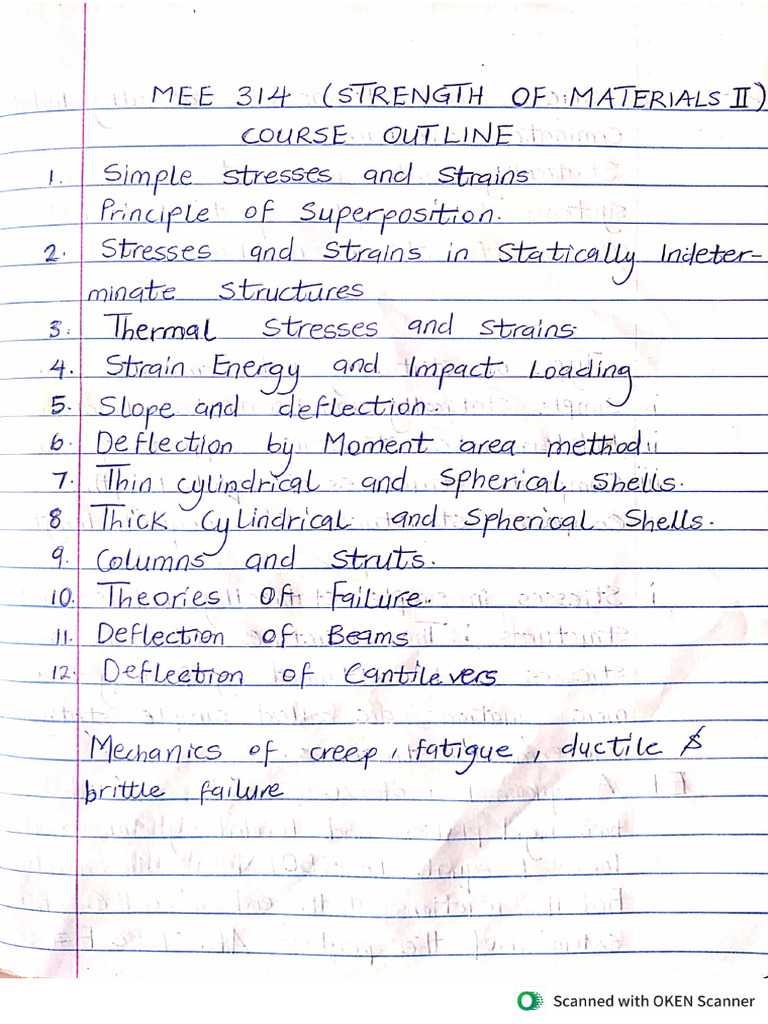 MEE 314 (STRENGTH OF MATERIALS II)
COURSE OUTLINE
1. Simple stresses and strains
Principle of Superposition.
2. Stresses and Strains in Statically Indeter-
minate Structures
3. Thermal Stresses and Strains.
4. Strain Energy and Impact Loading
5. Slope and deflection.
6. Deflection by Moment area method
7. Thin cylindrical and Spherical Shells.
8 Thick Cylindrical and Spherical Shells.
9. Columns and Struts.
10. Theories of Failure.
11. Deflection of Beams
12. Deflection of Cantilevers
Mechanics of creep, fatigue, ductile &
brittle failure
Scanned with OKEN Scanner